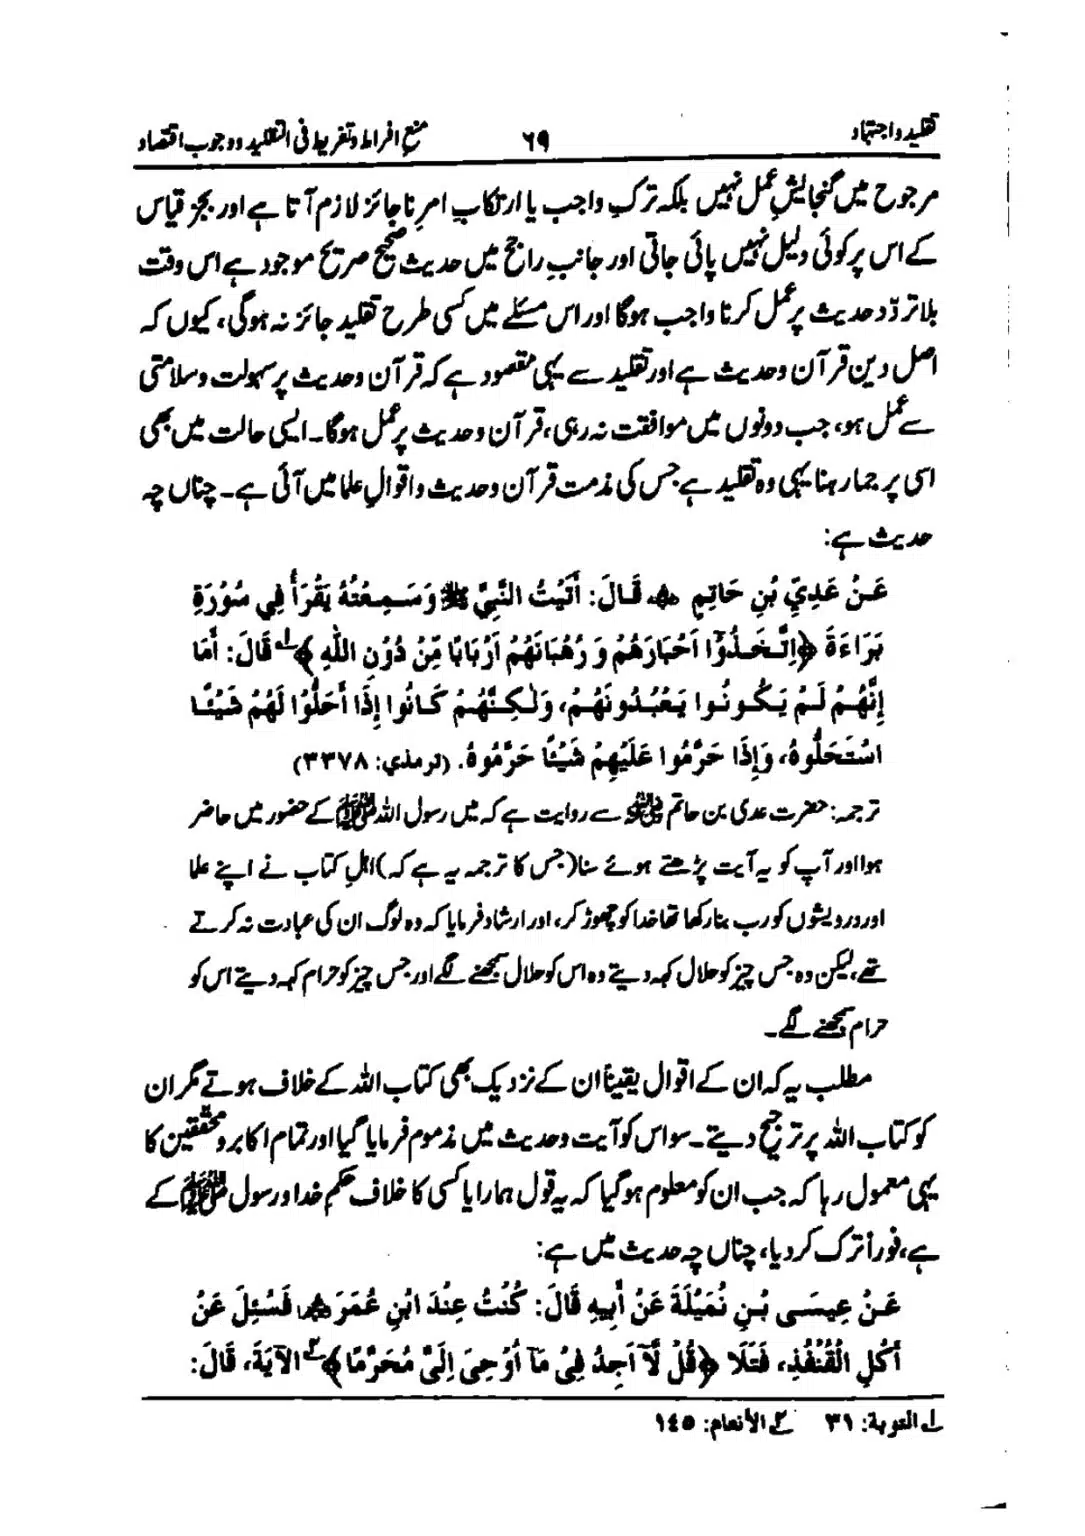 تقلید و اجتہاد ۶۹ منع افراط و تفریط فی التقلید ووجوب اقتصاد
مرجوح میں گنجایشِ عمل نہیں بلکہ ترکِ واجب یا ارتکابِ امرِ ناجائز لازم آتا ہے اور بجز قیاس
کے اس پر کوئی دلیل نہیں پائی جاتی اور جانبِ راجح میں حدیث صحیح صریح موجود ہے اس وقت
بلا تردّد حدیث پر عمل کرنا واجب ہوگا اور اس مسئلے میں کسی طرح تقلید جائز نہ ہوگی، کیوں کہ
اصل دین قرآن و حدیث ہے اور تقلید سے یہی مقصود ہے کہ قرآن و حدیث پر سہولت و سلامتی
سے عمل ہو، جب دونوں میں موافقت نہ رہی، قرآن و حدیث پر عمل ہوگا۔ ایسی حالت میں بھی
اسی پر جما رہنا یہی وہ تقلید ہے جس کی مذمت قرآن و حدیث و اقوالِ علما میں آئی ہے۔ چناں چہ
حدیث ہے:
عَنْ عَدِيِّ بْنِ حَاتِمٍ ؓ قَالَ: أَتَيْتُ النَّبِيَّ ﷺ وَسَمِعْتُهُ يَقْرَأُ فِي سُوْرَةِ
بَرَاءَةَ ﴿اِتَّخَذُوْٓا اَحْبَارَهُمْ وَرُهْبَانَهُمْ اَرْبَابًا مِّنْ دُوْنِ اللّٰهِ﴾ ؎۱ قَالَ: أَمَا
إِنَّهُمْ لَمْ يَكُونُوا يَعْبُدُونَهُمْ، وَلٰكِنَّهُمْ كَانُوا إِذَا أَحَلُّوْا لَهُمْ شَيْئًا
اسْتَحَلُّوهُ، وَإِذَا حَرَّمُوا عَلَيْهِمْ شَيْئًا حَرَّمُوهُ. (ترمذي: ۳۳۷۸)
ترجمہ: حضرت عدی بن حاتم رضی اللہ عنہ سے روایت ہے کہ میں رسول اللہ ﷺ کے حضور میں حاضر
ہوا اور آپ کو یہ آیت پڑھتے ہوئے سنا (جس کا ترجمہ یہ ہے کہ) اہلِ کتاب نے اپنے علما
اور درویشوں کو رب بنا رکھا تھا خدا کو چھوڑ کر، اور ارشاد فرمایا کہ وہ لوگ ان کی عبادت نہ کرتے
تھے، لیکن وہ جس چیز کو حلال کہہ دیتے وہ اس کو حلال سمجھنے لگے اور جس چیز کو حرام کہہ دیتے اس کو
حرام سمجھنے لگے۔
مطلب یہ کہ ان کے اقوال یقیناً ان کے نزدیک بھی کتاب اللہ کے خلاف ہوتے مگر ان
کو کتاب اللہ پر ترجیح دیتے۔ سو اس کو آیت و حدیث میں مذموم فرمایا گیا اور تمام اکابر و محققین کا
یہی معمول رہا کہ جب ان کو معلوم ہوگیا کہ یہ قول ہمارا یا کسی کا خلاف حکمِ خدا و رسول ﷺ کے
ہے، فوراً ترک کردیا، چناں چہ حدیث میں ہے:
عَنْ عِيسَى بْنِ نُمَيْلَةَ عَنْ أَبِيهِ قَالَ: كُنْتُ عِنْدَ ابْنِ عُمَرَ ؓ، فَسُئِلَ عَنْ
أَكْلِ الْقُنْفُذِ، فَتَلَا ﴿قُلْ لَّآ اَجِدُ فِيْ مَآ اُوْحِيَ اِلَيَّ مُحَرَّمًا﴾ ؎۲ الآيَةَ، قَالَ:
؎۱ التوبة: ۳۱ ؎۲ الأنعام: ۱٤٥